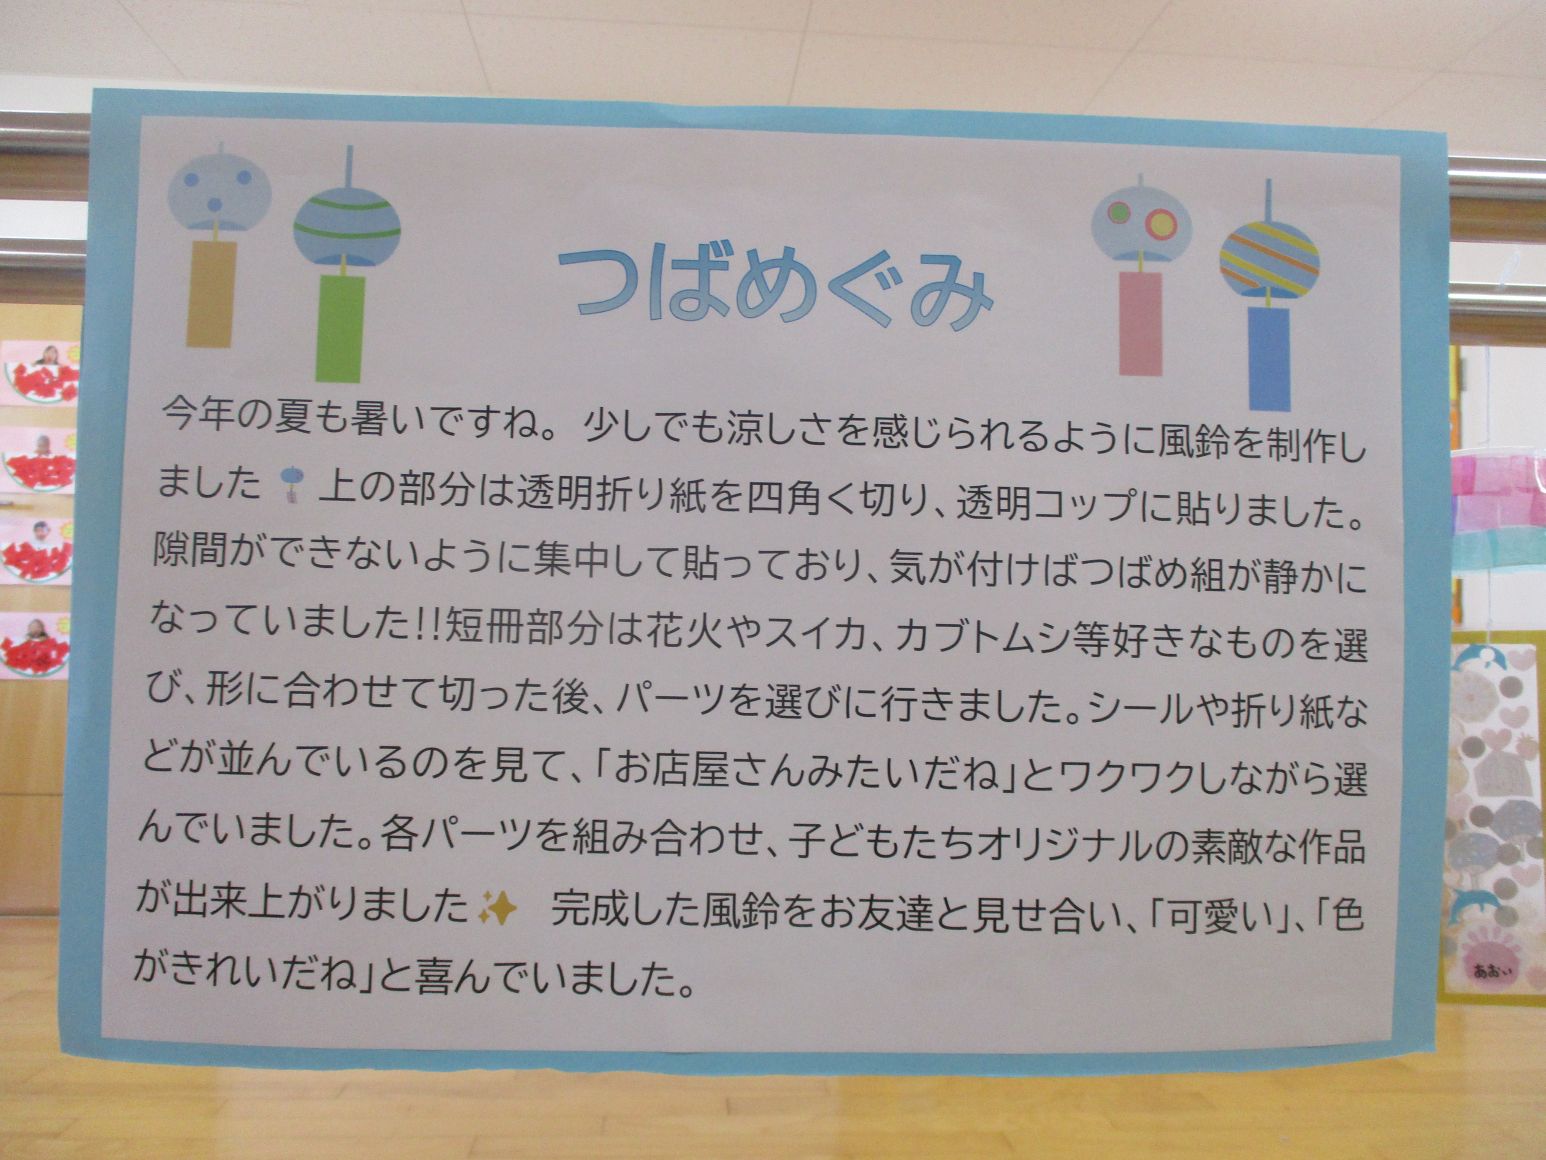 つばめぐみ
今年の夏も暑いですね。 少しでも涼しさを感じられるように風鈴を制作し
ました 上の部分は透明折り紙を四角く切り、透明コップに貼りました。
隙間ができないように集中して貼っており、気が付けばつばめ組が静かに
なっていました!!短冊部分は花火やスイカ、カブトムシ等好きなものを選
び、形に合わせて切った後、パーツを選びに行きました。シールや折り紙な
どが並んでいるのを見て、「お店屋さんみたいだね」とワクワクしながら選
んでいました。各パーツを組み合わせ、子どもたちオリジナルの素敵な作品
が出来上がりました✨ 完成した風鈴をお友達と見せ合い、「可愛い」、「色
がきれいだね」と喜んでいました。
あおい